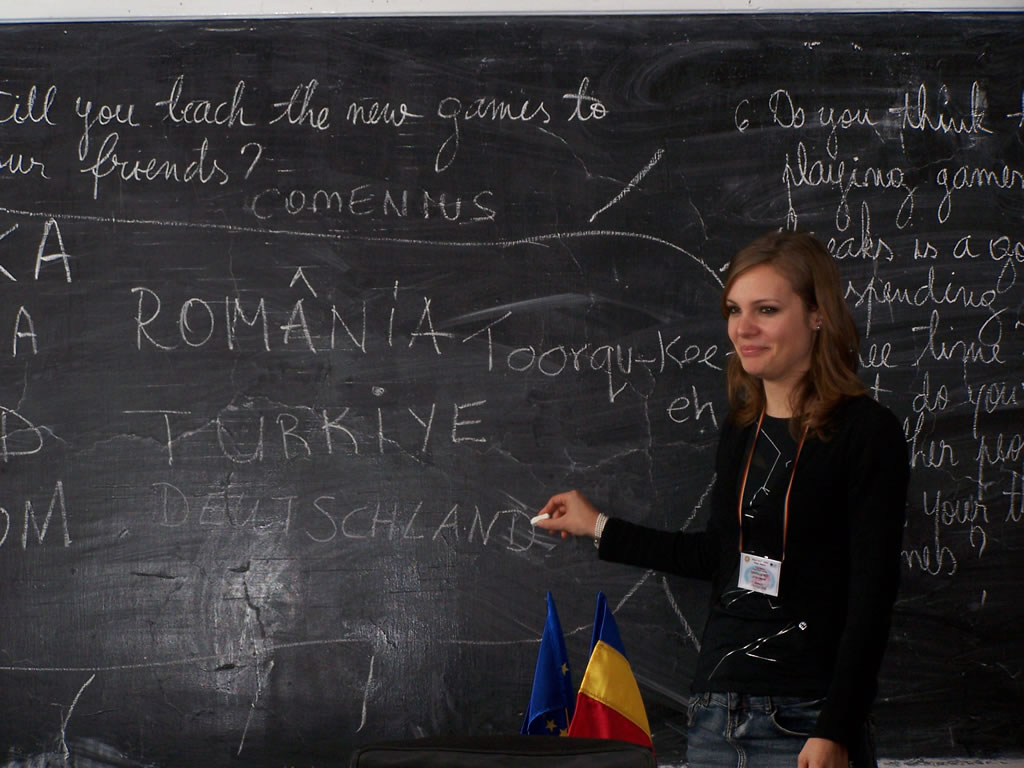 till you teach the new games to
ur friends?
COMENIUS
KA
A
D
OM
ROMÂNiA
TÜRKiYE
DEUTSCHLAND
Toorqu-Kee-
eh
6 Do you think t
playing games
eaks is a go
spending
ee time
t do you
her peo
your ti
nes?